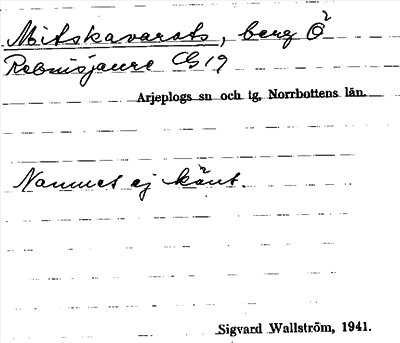 Mitskavarats, berg Ö
Rebnisjaure CG19
Arjeplogs sn och tg, Norrbottens län.
Namnet ej känt.
Sigvard Wallström, 1941.